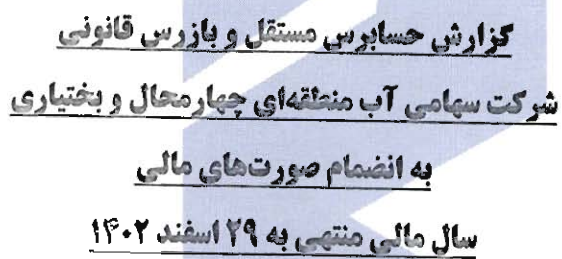 گزارش حسابرس مستقل و بازرس قانونی
شرکت سهامی آب منطقه‌ای چهارمحال و بختیاری
به انضمام صورت‌های مالی
سال مالی منتهی به ۲۹ اسفند ۱۴۰۲